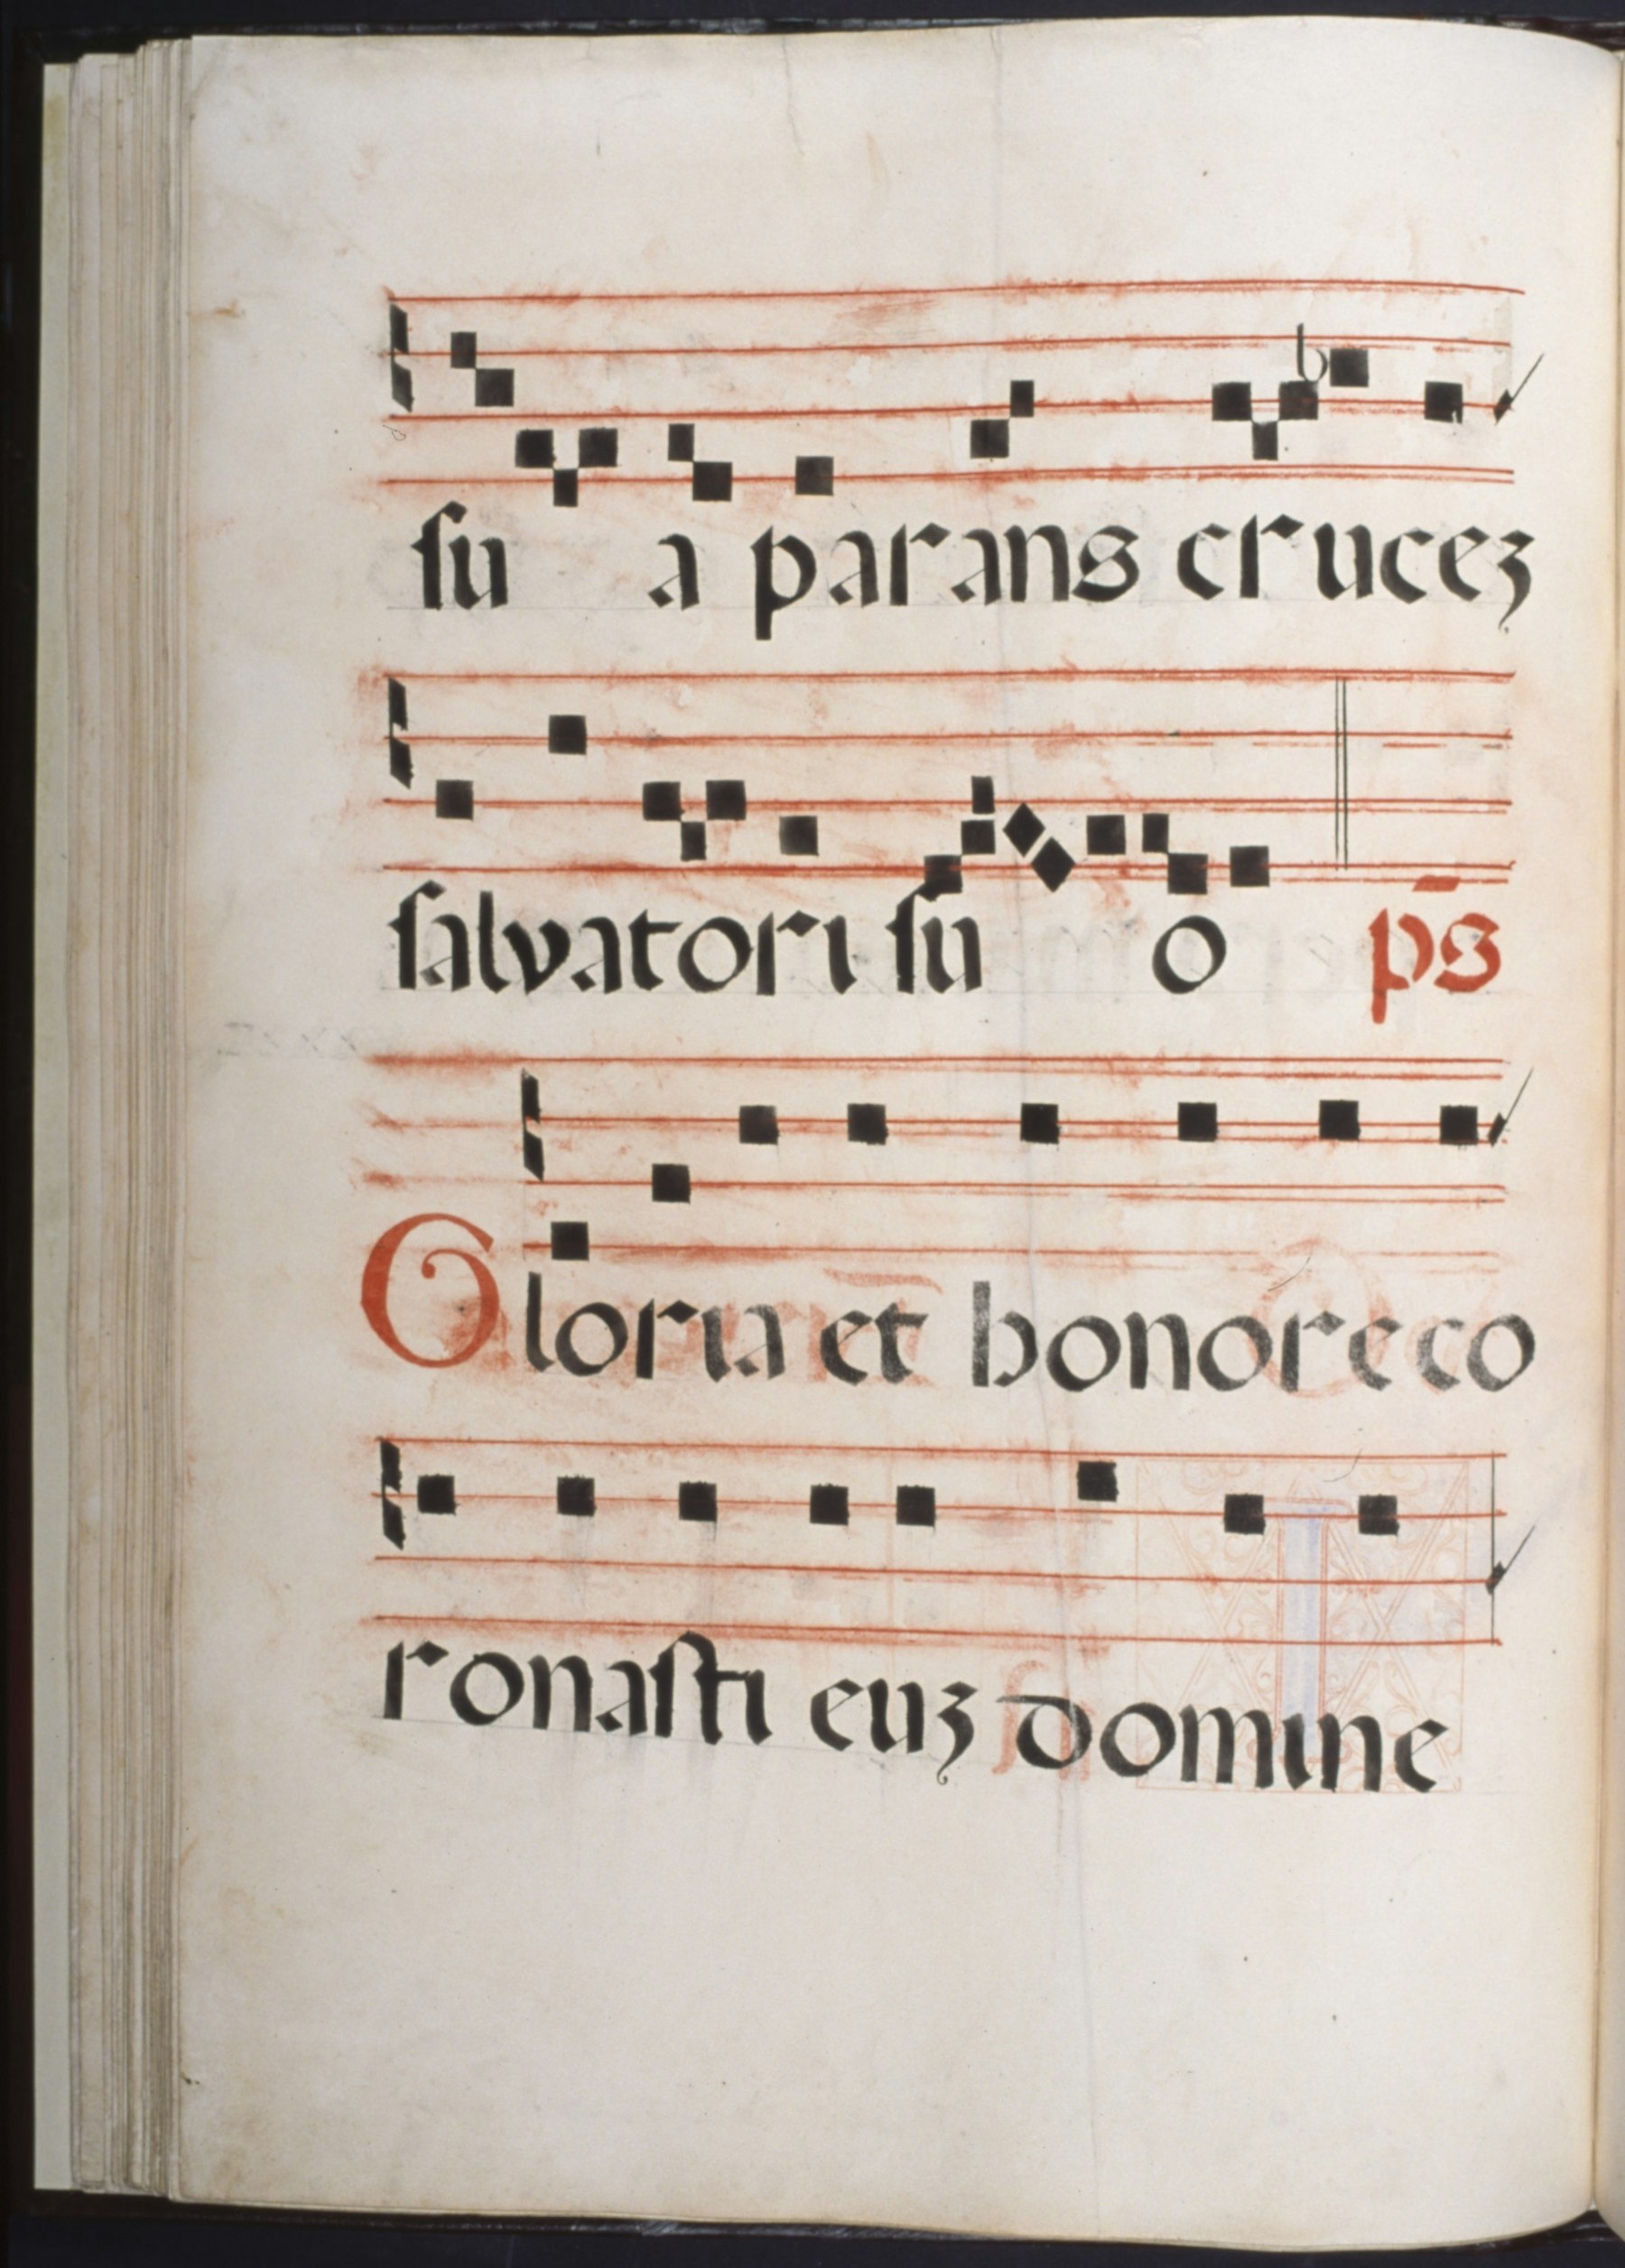 ſu a parans cruceꝫ
ſalvatori ſu o p̄s
Gloria et honore co
ronaſti euꝫ domine